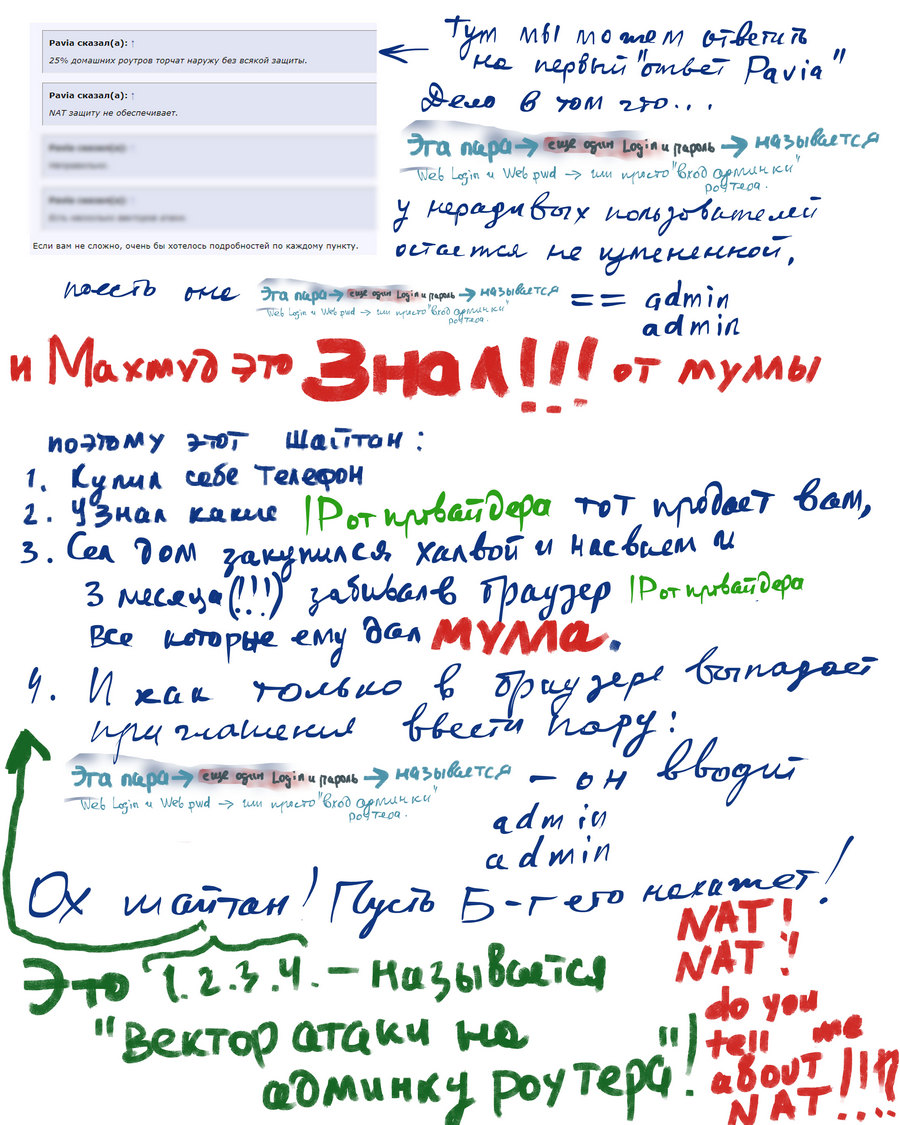 Pavia сказал(а): ↑
25% домашних роутров торчат наружу без всякой защиты.
Pavia сказал(а): ↑
NAT защиту не обеспечивает.
Pavia сказал(а): ↑
Неправильно.
Pavia сказал(а): ↑
Есть несколько векторов атаки.
Если вам не сложно, очень бы хотелось подробностей по каждому пункту.
Тут мы можем ответить
на первый "ответ Pavia"
Дело в том что...
Эта пара → еще один Login и пароль → называется
Web Login и Web pwd → или просто "вход админки"
роутера.
у нерадивых пользователей
остается не измененной,
тоесть она
Эта пара → еще один Login и пароль → называется
Web Login и Web pwd → или просто "вход админки"
роутера.
== admin
admin
и Махмуд это Знал!!! от муллы
поэтому этот шайтан:
1. Купил себе телефон
2. Узнал какие IP от провайдера тот продает вам,
3. Сел дом закупился халвой и насваем и
3 месяца (!!!) забивал в браузер IP от провайдера
все которые ему дал мулла.
4. И как только в браузере выпадает
приглашения ввести пару:
Эта пара → еще один Login и пароль → называется
Web Login и Web pwd → или просто "вход админки"
роутера.
– он вводит
admin
admin
Ох шайтан! Пусть Б-г его накажет!
Это 1.2.3.4. – называется
"Вектор атаки на
админку роутера"!
NAT!
NAT!
do you
tell me
about !!!!
NAT....